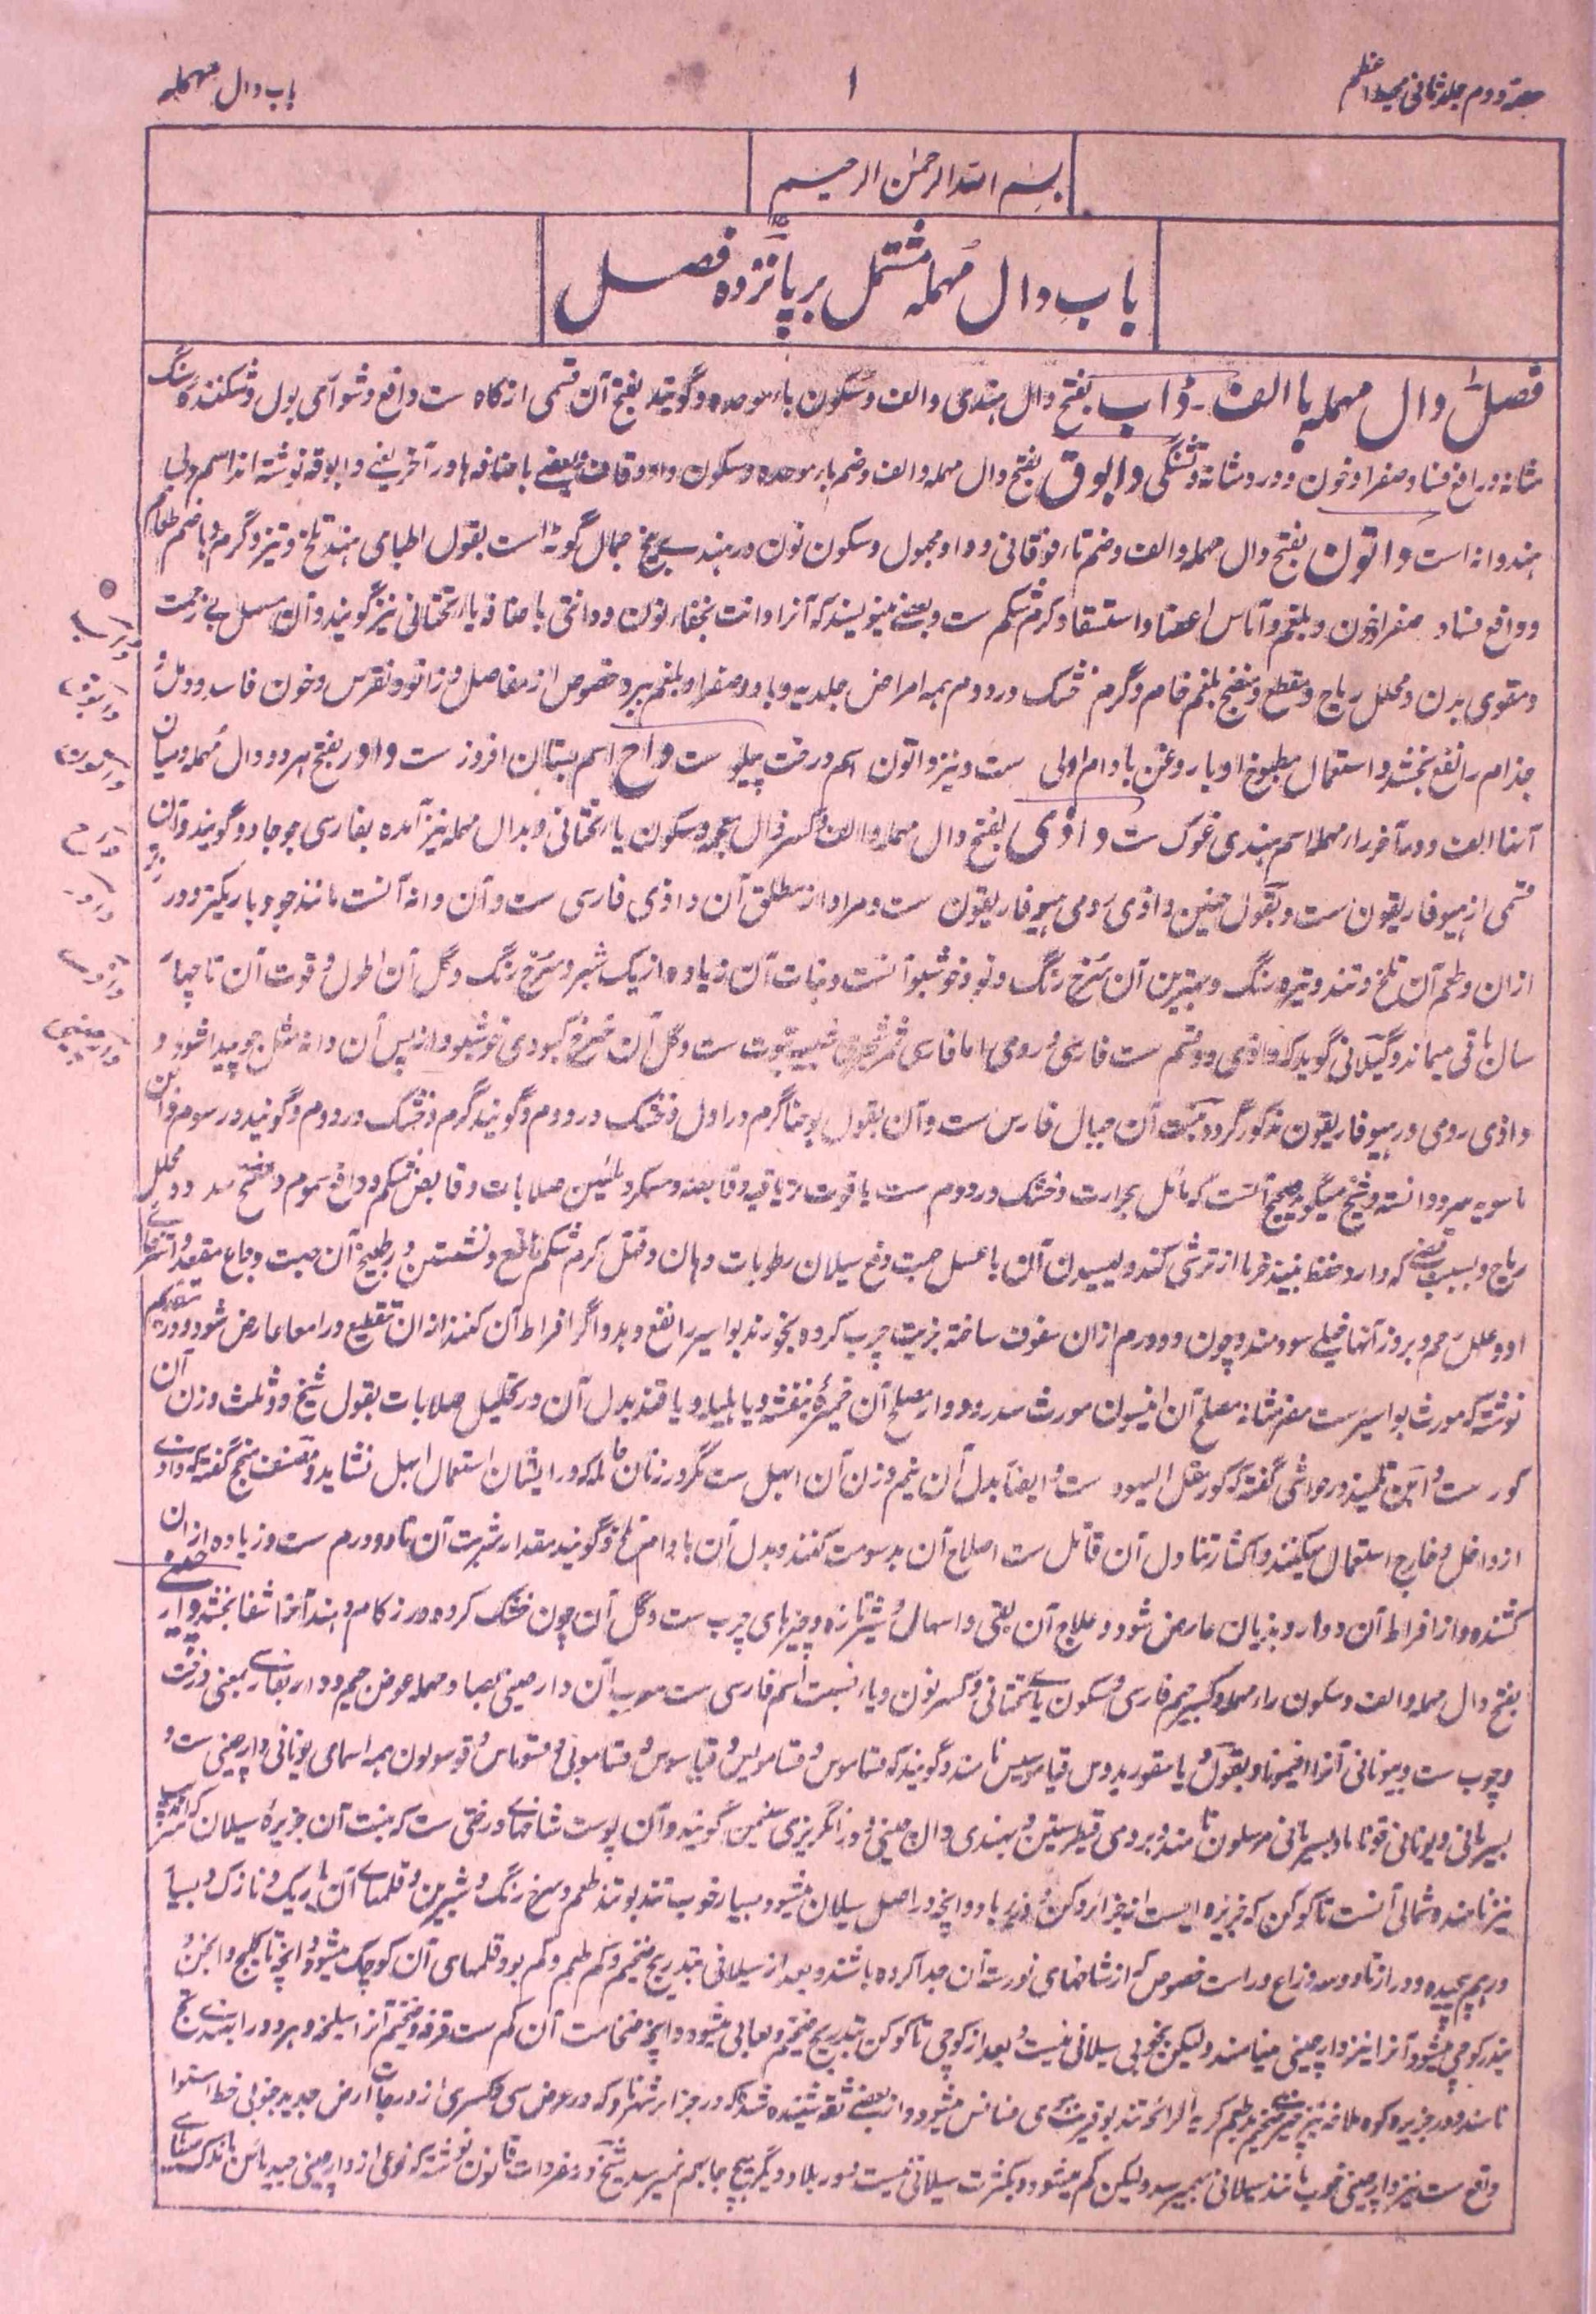 حصه دوم جلد ثانی محیط اعظم
۱
باب دال مهمله
بسم الله الرحمن الرحیم
باب دال مهمله مشتمل بر پانزده فصل
فصل دال مهمله با الف - ڈاب بفتح دال هندی و الف و سکون باء موحده و گویند بفتح آن قسمی از کاه ست دافع دشواری بول و شکننده سنگ
مثانه و رافع فساد صفرا و خون و درد مثانه و تشنگی دابوق بفتح دال مهمله و الف و ضم باء موحده و سکون واو و قاف و بعضے باضافه ها در آخر یعنے دابوقه نوشته اند اسم دلی
هندوانه است داتون بفتح دال مهمله و الف و ضم تاء فوقانی و واو مجهول و سکون نون در هندے بیخ جمال گوٹه است بقول اطبای هند تلخ و تیز و گرم و هاضم طعام
و دافع فساد صفرا و خون و بلغم و آماس اعضا و استسقا و کرم شکم ست و بعضے مینویسند که آنرا دانت بخفاء نون و دانتی باضافه یاء تحتانی نیز گویند و آن مسهل بے زحمت
و مقوی بدن و محلل ریاح و مقطع و منضج بلغم خام و گرم خشک در دوم همه امراض جلدیه و باد و صفرا و بلغم ببرد خصوص از مفاصل و زانو و نقرس و خون فاسد و دمل
جذام را نفع بخشد و استعمال مطبوخ او با روغن بادام اولی ست و نیز داتون اسم درخت پیلو ست داح اسم بستان افروز ست دادر بفتح هر دو دال مهمله و میان
آنها الف و در آخر راء مهمله اسم هندی غوک ست داذی بفتح دال مهمله و الف و کسر ذال معجمه و سکون یاء تحتانی و بدال مهمله نیز آمده بفارسی جو جادو گویند و آن
قسمی از هیوفاریقون ست و بقول حنین داذی رومی هیوفاریقون ست و مراد از مطلق آن داذی فارسی ست و آن دانه آنست مانند جو و باریکتر و دراز تر
ازان و طعم آن تلخ و تند و تیره رنگ و بهترین آن سرخ رنگ و نو و خوشبو آنست و نبات آن زیاده از یک شبر و سرخ رنگ و گل آن اطول و قوت آن تا چهار
سال باقی میماند و گیلانی گوید که داذی دو قسم ست فارسی و رومی اما فارسی ثمر شجری شبیه بتوت ست و گل آن سرخ کبودی خوشبو و از پس آن دانه مثل جو پیدا شود و
داذی رومی در هیوفاریقون مذکور گردد منبت آن جبال فارس ست و آن بقول یوحنا گرم در اول و خشک در دوم و گویند گرم و خشک در دوم و گویند در سوم و ابن
ماسویه سرد دانسته و شیخ میگوید صحیح آنست که مائل بحرارت و خشک در دوم ست با قوت تریاقیه و قابضه و مسکر و ملین صلابات و قابض شکم و دافع سموم و مفتح سدد و محلل
ریاح و بسبب قبضے که دارد حفظ نبیذ خرما از ترشی کند و لیسیدن آن با عسل جهت دفع سیلان رطوبات دهان و قتل کرم شکم نافع و نشستن در طبیخ آن جهت وجاع مقعد و استرخای
او و علل رحم و بروز آنها خیلے سودمند و چون دو درم ازان سفوف ساخته بزیت چرب کرده بخورند بواسیر را نفع دهد و اگر افراط آن کنند ازان تقطیع در امعا عارض شود
نوشته که مورث بواسیر ست مضر مثانه مصلح آن انیسون مورث سدر و دوار مصلح آن خمیره بنفشه و یا هلیله و یا قند بدل آن در تحلیل صلابات بقول شیخ دو ثلث وزن آن
کور ست و ابن تلمیذ در حواشی گفته که کور مقل الیهود ست و ایضاً بدل آن نیم وزن آن ابهل ست مگر در زنان حامله که در ایشان استعمال ابهل نشاید و مصنف منهج گفته که داذے
از داخل و خارج استعمال میکنند و اکثار تناول آن قاتل ست اصلاح آن بدسومت کنند و بدل آن بادام تلخ و گویند مقدار شربت آن تا دو درم ست و زیاده ازان
کشنده و از افراط آن دوار و هذیان عارض شود و علاج آن بقی و اسهال و شیر تازه و چیزهای چرب ست و گل آن چون خشک کرده در زکام دهند آنرا شفا بخشد دارچینے
بفتح دال مهمله و الف و سکون راء مهمله و کسر جیم فارسی و سکون یاے تحتانی و کسر نون و یاء نسبت اسم فارسی ست معرب آن دارصینی بصاد مهمله عوض جیم و دار بفارسے بمعنی درخت
و چوب ست و بیونانی آنرا افیمونا و بقول
بسیریانی و یونانی قوناما و بسریانی مرسلون نامند و برومی قیطریتین و بهندی دال چینی و در انگریزی سنیمن گویند و آن پوست شاخهاے درختی ست که منبت آن جزیره سیلان
نیز نامند و شمالی آنست تا کوکن که جزیره ایست از جزائر دکن و زیرباد و آنچه در اصل سیلان میشود بسیار خوب تند بو تند طعم و سرخ رنگ و شیرین و قلمهاے آن باریک و نازک و بسیار
در هم پیچیده و دراز تا دو سه ذراع دراست خصوص که از شاخهای نورسته آن جدا کرده باشند و بعد از سیلانی بتدریج ضخیم و کم طعم و کم بو و قلمهای آن کوچک میشود و آنچه تا
بندر کوچی میشود آنرا نیز دارچینی مینامند و لیکن بخوبی سیلانی نیست و بعد از کوچی تا کوکن بتدریج ضخیم و لعابی میشود و آنچه ضخامت آن کم ست قرفه و ضخیم آنرا سلیخه و هر دو را بهندے تج
نامند و در جزیره و کوه ملاغه نیز چیزے ضخیم بد طعم کریه الرائحه تند بو قرفه سی مسانس میشود و از بعضے ثقه شنیده شد که در جزائر شهر ناو که در عرض سی و کسری از درجات ارض جدید جنوبی خط استوا
واقع ست نیز دارچینی خوب مانند سیلانی بهمیرسد و لیکن کم میشود و بکثرت سیلانی نیست و در بلاد دیگر هیچ جا بهم نمیرسد شیخ در مفردات قانون نوشته که نوعی از دارچینی جید